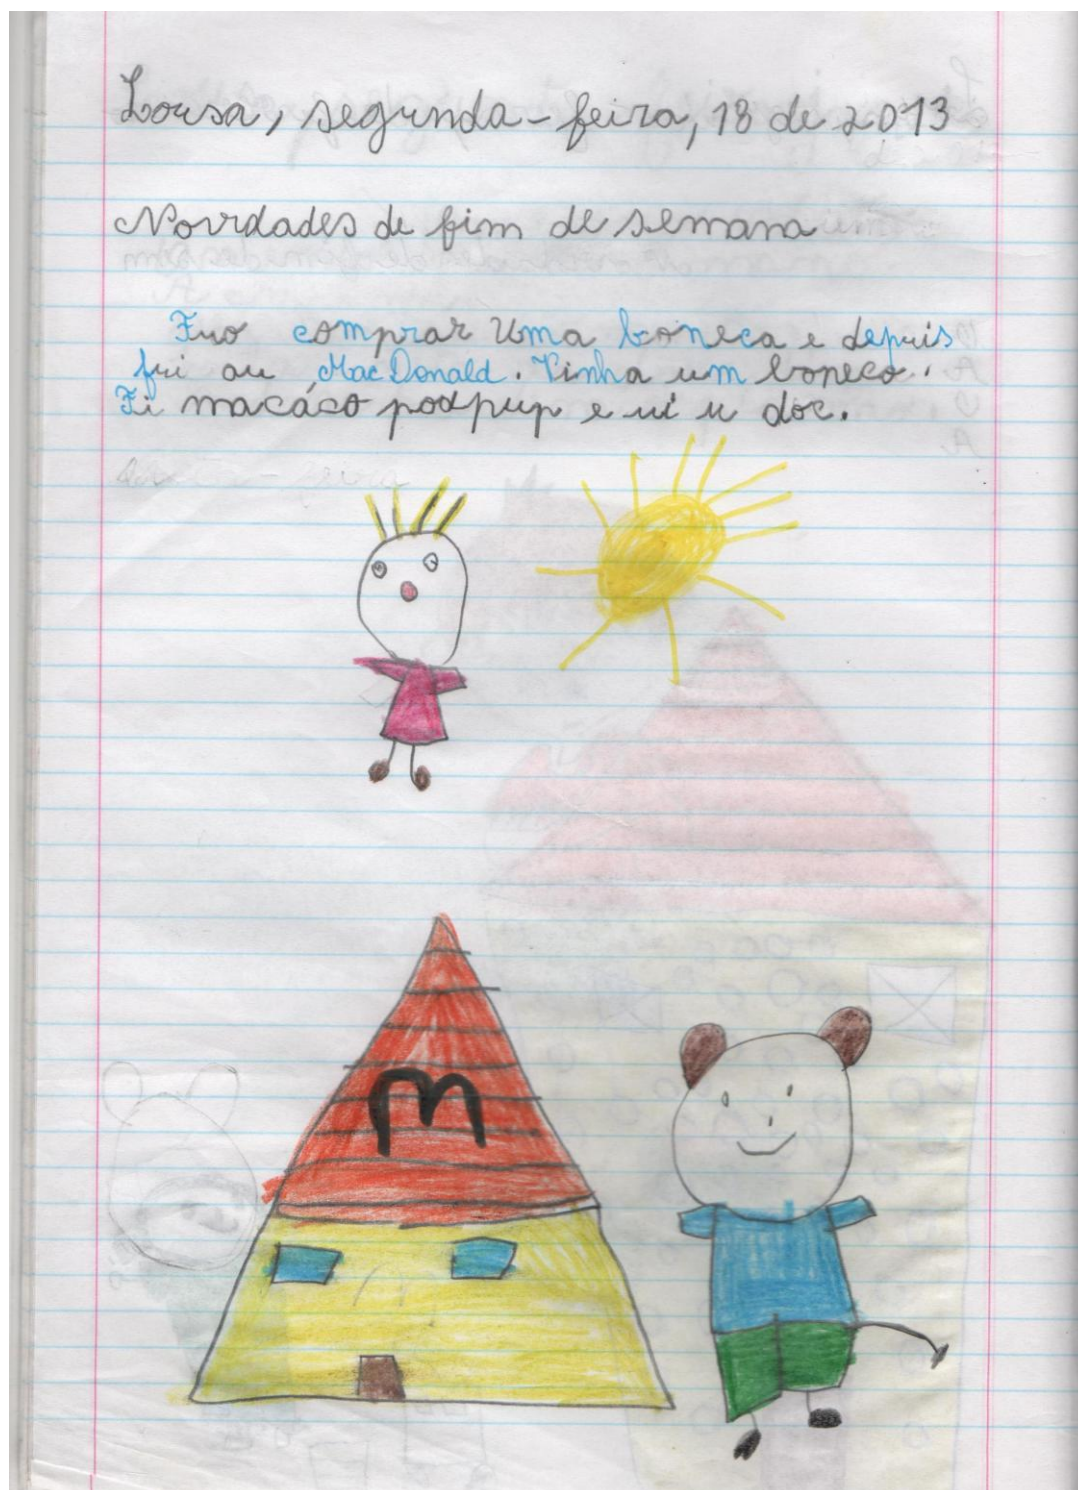 Lousa, segunda-feira, 18 de 2013
Novidades de fim de semana
Fuo comprar uma boneca e depuis
fui au MacDonald. Tinha um boneco.
Fi macáco podpup e ui u doc.
m